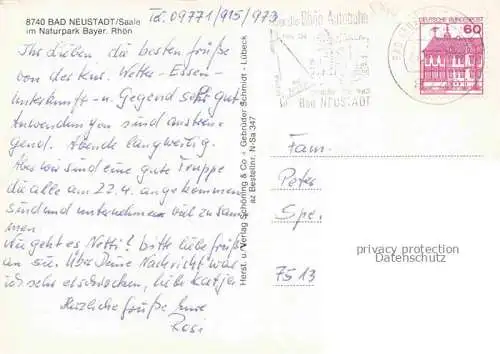 Tel. 09771/915/973
8740 BAD NEUSTADT/Saale
im Naturpark Bayer. Rhön
Ihr Lieben, die besten Grüße
von der Kur. Wetter - Essen -
Unterkunft - u. Gegend sehr gut
Anwendungen sind anstren-
gend. Abende langweilig.
Aber wir sind eine gute Truppe
die alle am 22.4. angekommen
sind und unternehmen viel zusam
men
Wie geht es Notti? bitte liebe Grüße
an sie. Über Deine Nachricht war
ich sehr erschrocken, liebe Katja
Herzliche Grüße Eure
Rosi
Herst. u. Verlag Schöning & Co + Gebrüder Schmidt - Lübeck
az Bestellnr. N-Sa 347
die Rhön-Autobahn
Bad NEUSTADT
DEUTSCHE BUNDESPOST
60
Fam.
Peter
Spe.
7513
privacy protection
Datenschutz